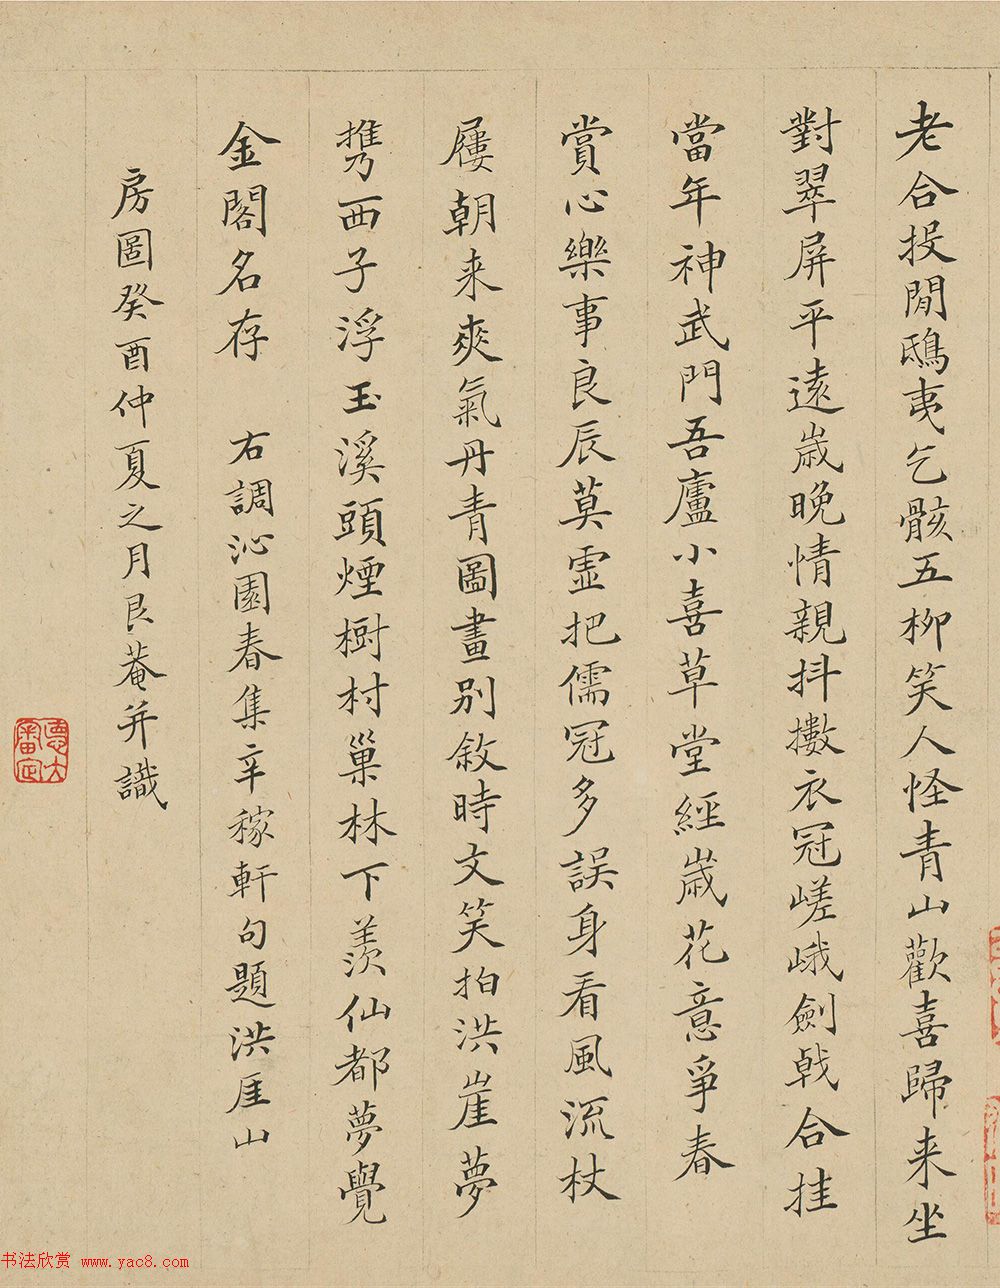 老合投閒鴟夷乞骸五柳笑人怪青山歡喜歸来坐
對翠屏平遠歲晚情親抖擻衣冠嵯峨劍戟合挂
當年神武門吾廬小喜草堂經歲花意爭春
賞心樂事良辰莫虛把儒冠多誤身看風流杖
屨朝来爽氣丹青圖畫別敘時文笑拍洪崖夢
携西子浮玉溪頭煙樹村巢林下羨仙都夢覺
金閣名存 右調沁園春集辛稼軒句題洪厓山
房圖癸酉仲夏之月艮菴并識
书法欣赏 www.yac8.com